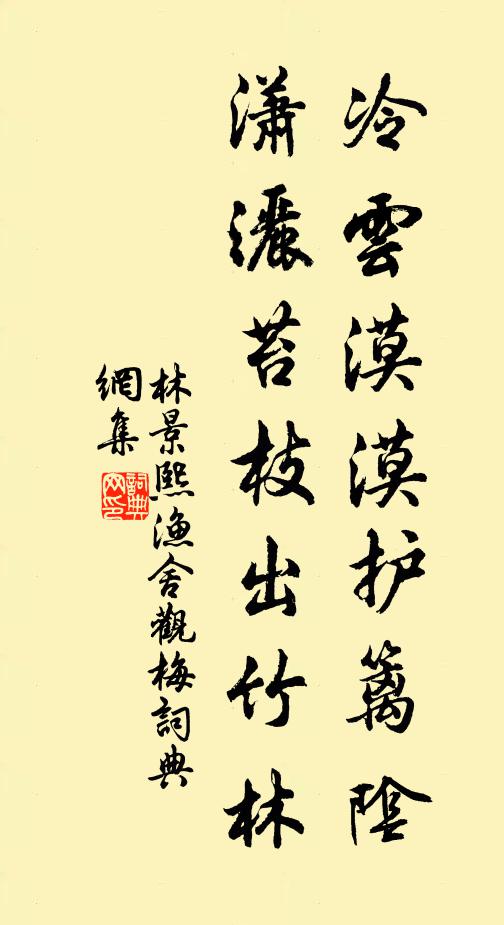 冷雲漠漠护篱陰
瀟灑苔枝出竹林
林景熙漁舍觀梅詞典
網集
詞典
网印